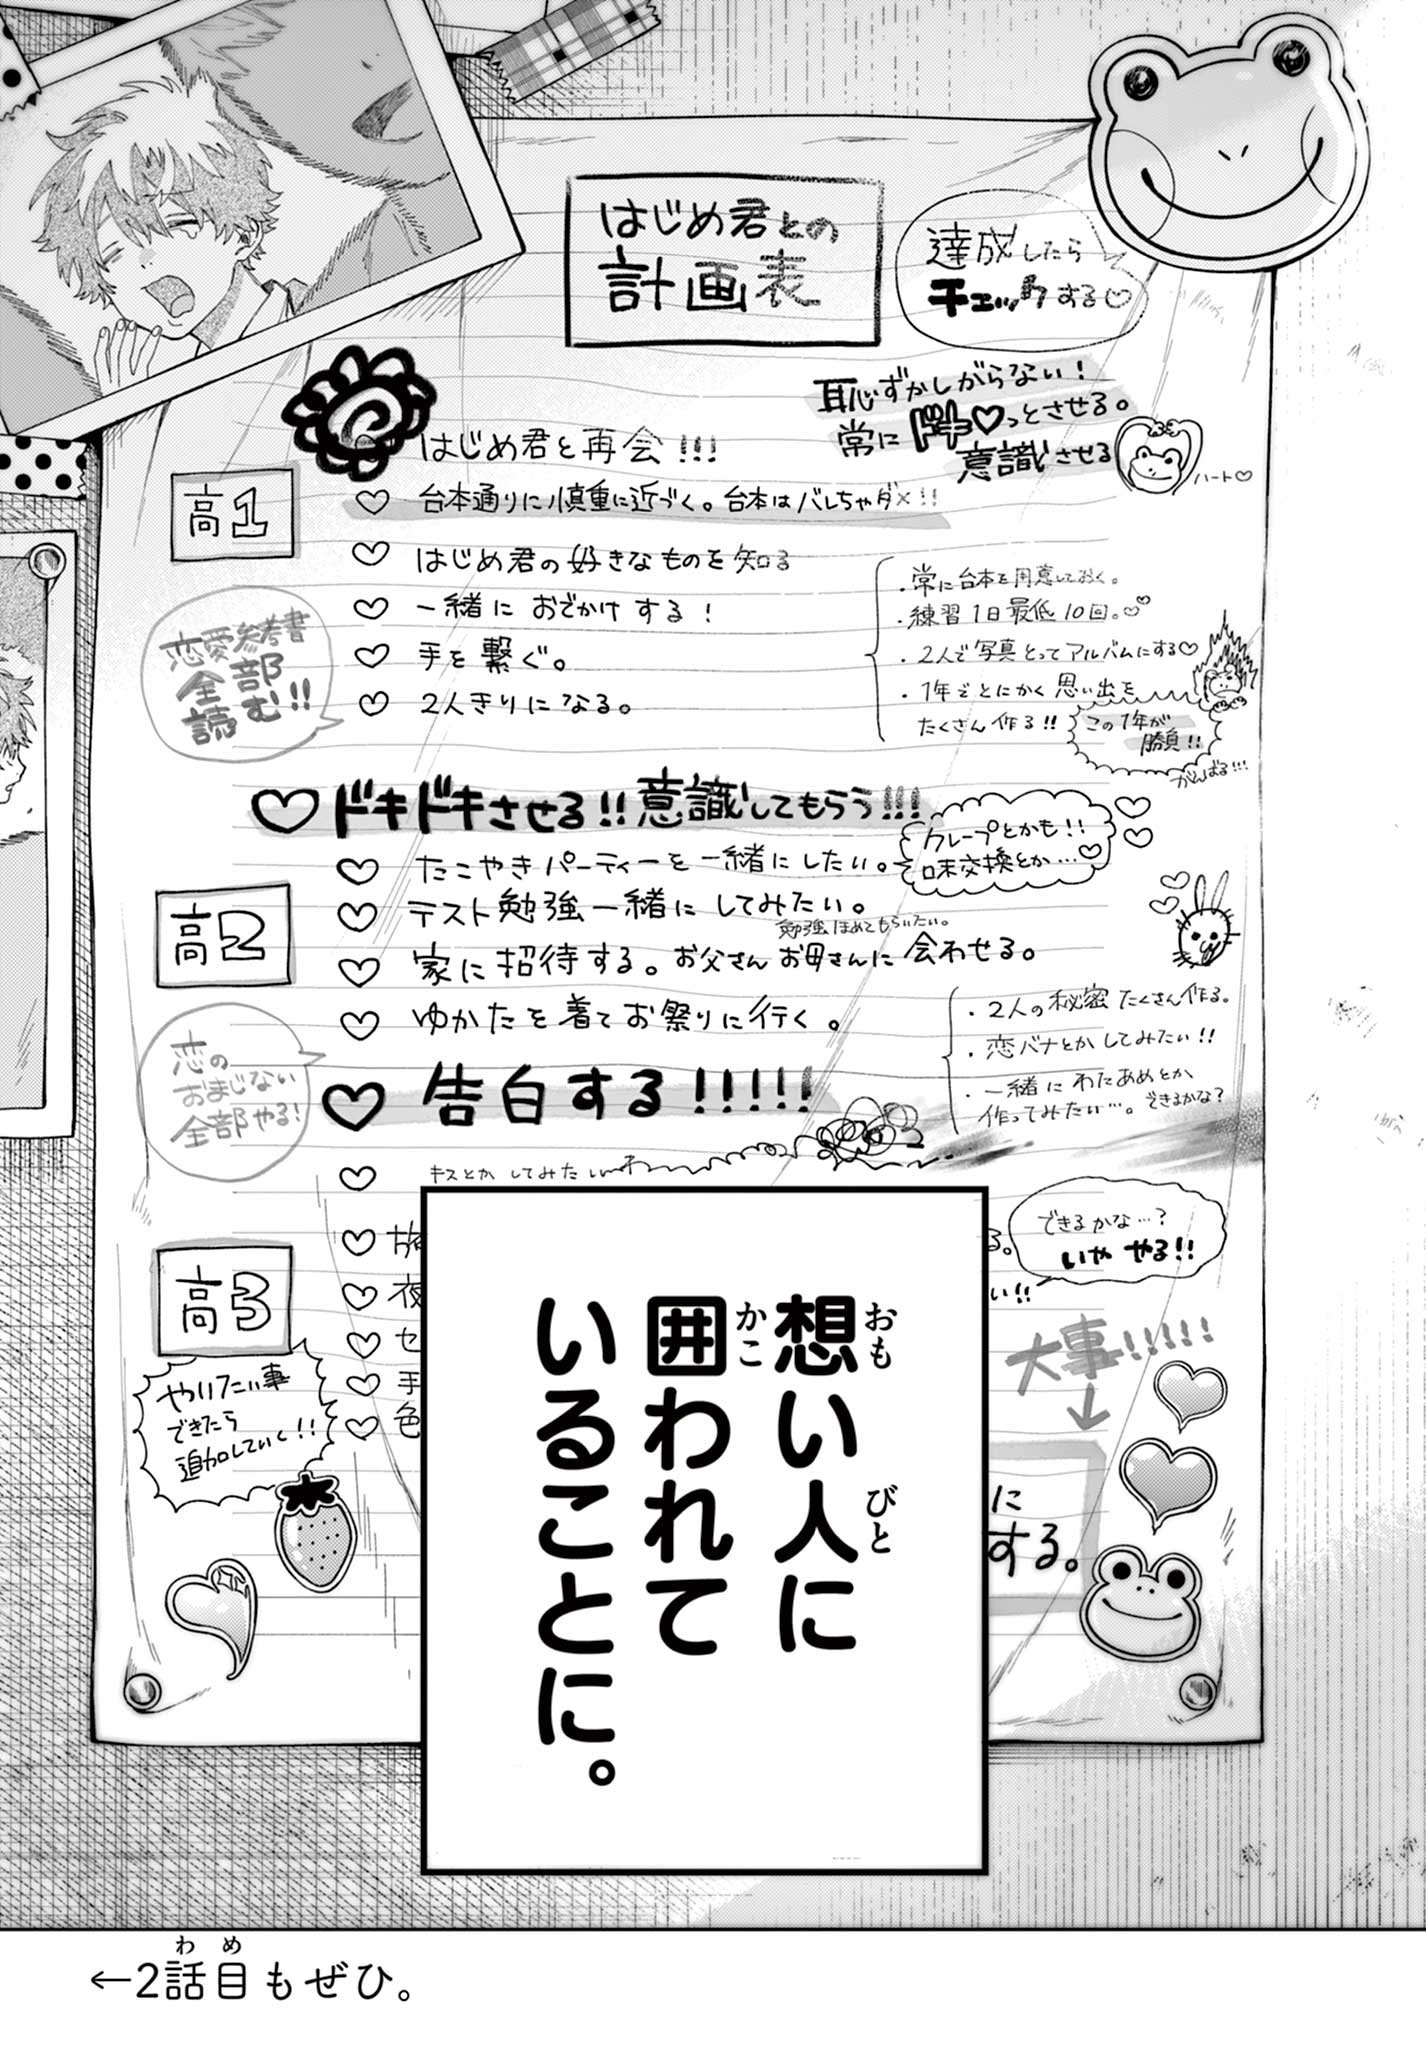 はじめ君との
計画表
達成したら
チェックする♡
恥ずかしがらない!
常にドキ♡っとさせる。
意識させる
ハート♡
はじめ君と再会!!!
高1
♡ 台本通りに慎重に近づく。台本はバレちゃダメ!!
♡ はじめ君の好きなものを知る
♡ 一緒に おでかけ する!
♡ 手を繋ぐ。
♡ 2人きりになる。
恋愛参考書
全部
読む!!
・常に台本を用意しておく。
・練習1日最低10回。♡♡
・2人で写真とってアルバムにする♡
・1年でとにかく思い出を
たくさん作る!!
この1年が
勝負!!
がんばる!!!
♡ドキドキさせる!!意識してもらう!!!
♡ たこやきパーティーを一緒にしたい。
クレープとかも!!
味交換とか…♡
高2
♡ テスト勉強一緒にしてみたい。
勉強ほめてもらいたい。
♡ 家に招待する。お父さんお母さんに会わせる。
♡ ゆかたを着てお祭りに行く。
・2人の秘密たくさん作る。
・恋バナとかしてみたい!!
・一緒にわたあめとか
作ってみたい…。できるかな?
恋の
おまじない
全部やる!
♡ 告白する!!!!!
♡ キスとかしてみたい
高3
できるかな…?
いや やる!!
る。
い!!
♡ 夜
♡ セ
♡ 手
♡ 色
やりたい事
できたら
追加していく!!
大事!!!!!
↓
に
する。
想い人に
囲われて
いることに。
おも
びと
かこ
←2話目もぜひ。
わめ